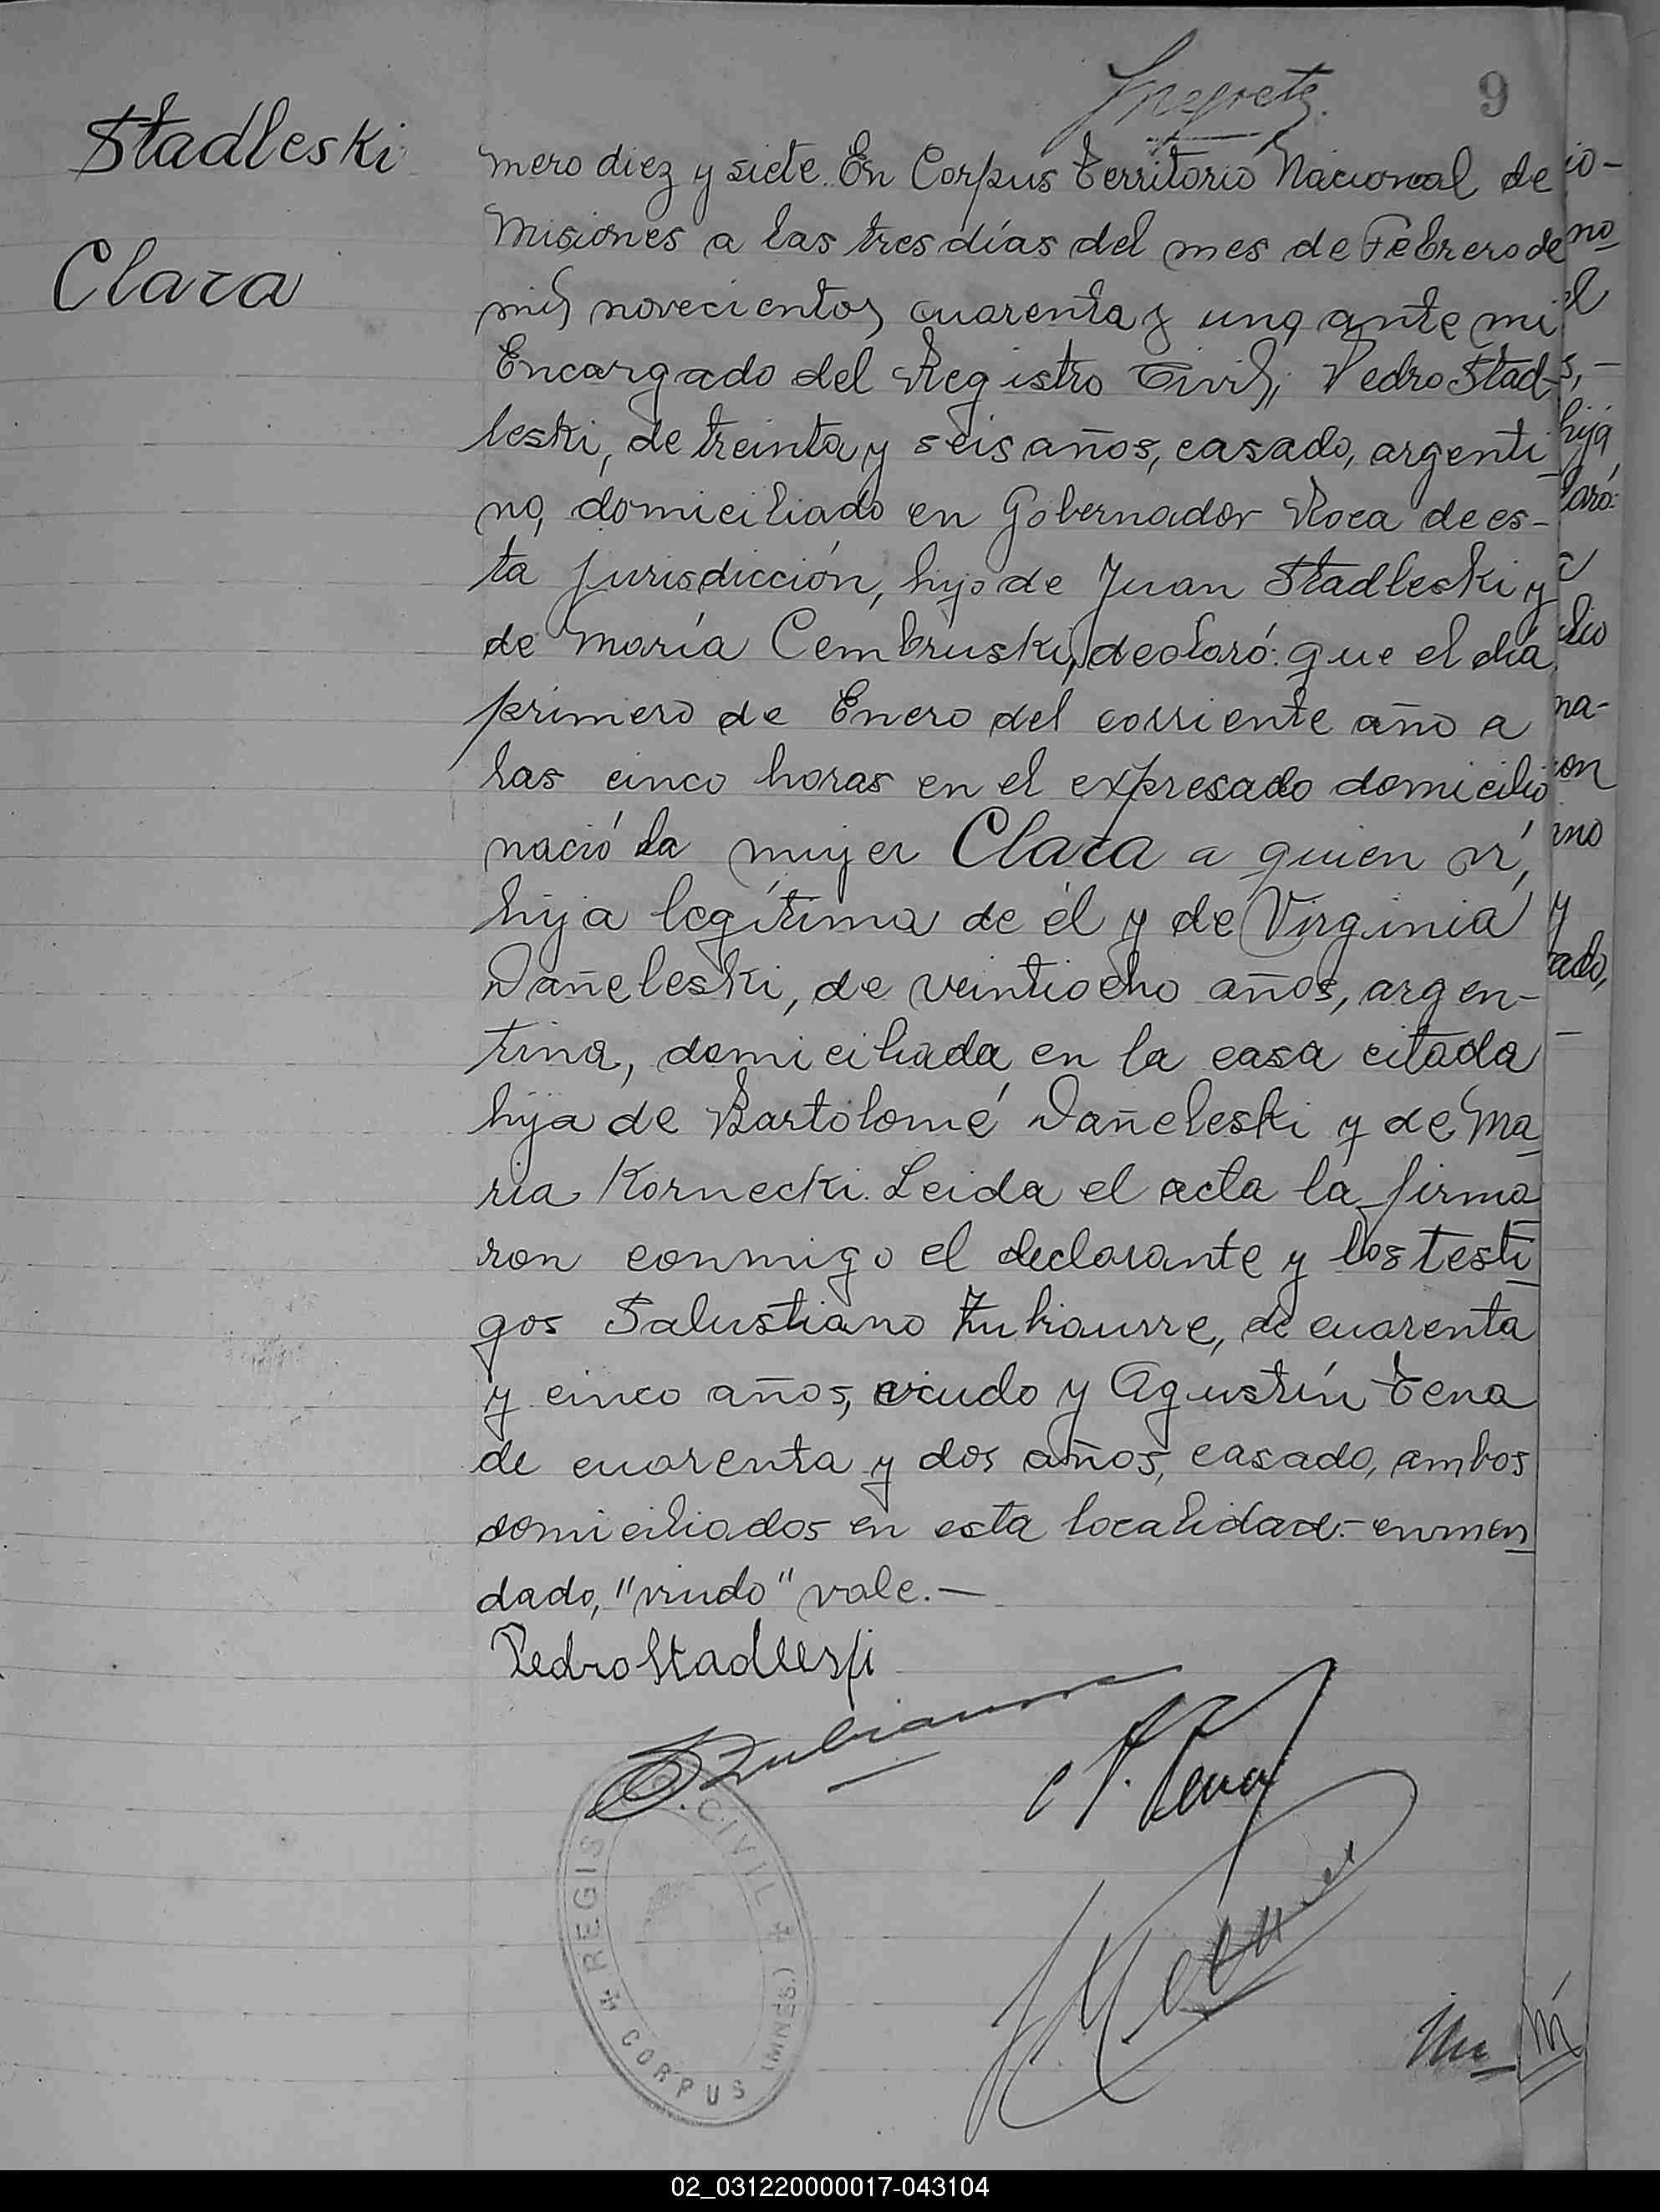 9
Stadleski
Clara
mero diez y siete. En Corpus Territorio Nacional de
Misiones a las tres días del mes de Febrero de
mil novecientos cuarenta y uno, ante mi
Encargado del Registro Civil; Pedro Stad-
leski, de treinta y seis años, casado, argenti
no, domiciliado en Gobernador Roca de es-
ta jurisdicción, hijo de Juan Stadleski y
de María Cembruski, declaró: que el día
primero de Enero del corriente año a
las cinco horas en el expresado domicilio
nació la mujer Clara a quien ví,
hija legítima de él y de Virginia
Dañeleski, de veintiocho años, argen-
tina, domiciliada en la casa citada
hija de Bartolomé Dañeleski y de Ma
ria Kornecki. Leida el acta la firma
ron conmigo el declarante y los testi
gos Salustiano Zubiaurre, de cuarenta
y cinco años, viudo y Agustín Tena
de cuarenta y dos años, casado, ambos
domiciliados en esta localidad.- enmen
dado, "viudo" vale.—
Pedro Stadleski
S. Zubiaurre
A. Tena
REGIS CIVIL
CORPUS (MNES.)
02_031220000017-043104